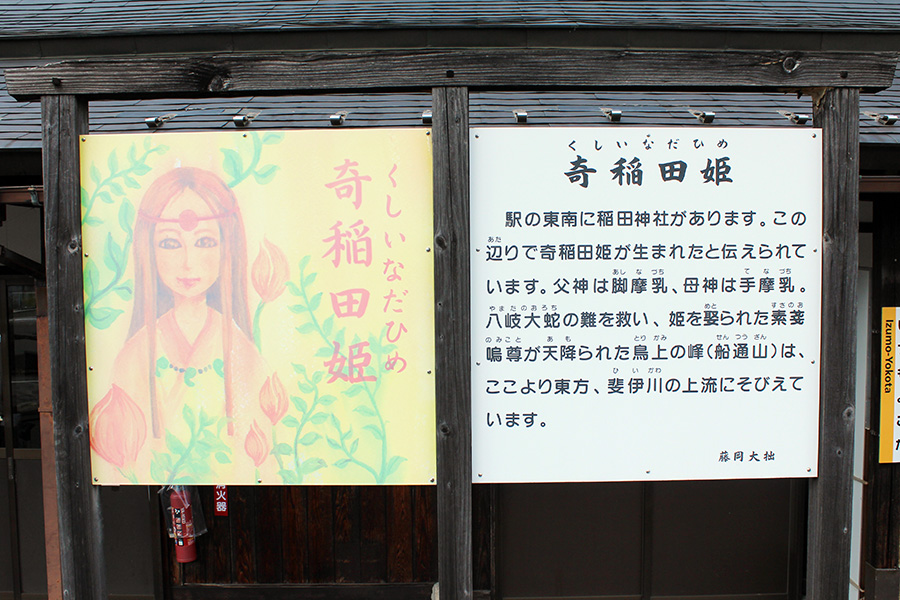 くしいなだひめ
奇稲田姫
くしいなだひめ
奇稲田姫
駅の東南に稲田神社があります。この
あた
辺りで奇稲田姫が生まれたと伝えられて
あし な づち て な づち
います。父神は脚摩乳、母神は手摩乳。
やまたのおろち めと すさのお
八岐大蛇の難を救い、姫を娶られた素戔
のみこと あも とり かみ せん つう ざん
嗚尊が天降られた鳥上の峰(船通山)は、
ひ い かわ
ここより東方、斐伊川の上流にそびえて
います。
藤岡大拙
消火器
Izumo-Yokota